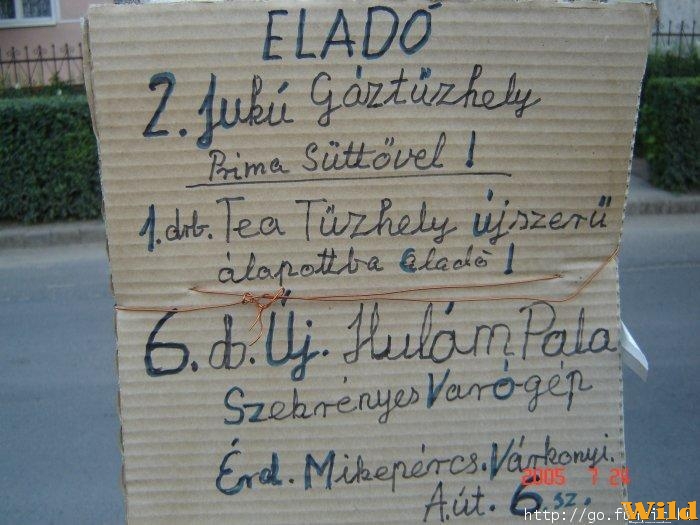 ELADÓ
2. Jukú Gáztűzhely
Prima Süttővel !
1. drb. Tea Tűzhely újszerű
álapottba eladó !
6. db. Új. Hulám Pala
Szekrényes Varógép
Érd. Mikepércs. Várkonyi.
2005 7 24
A. út. 6 sz.
Wild